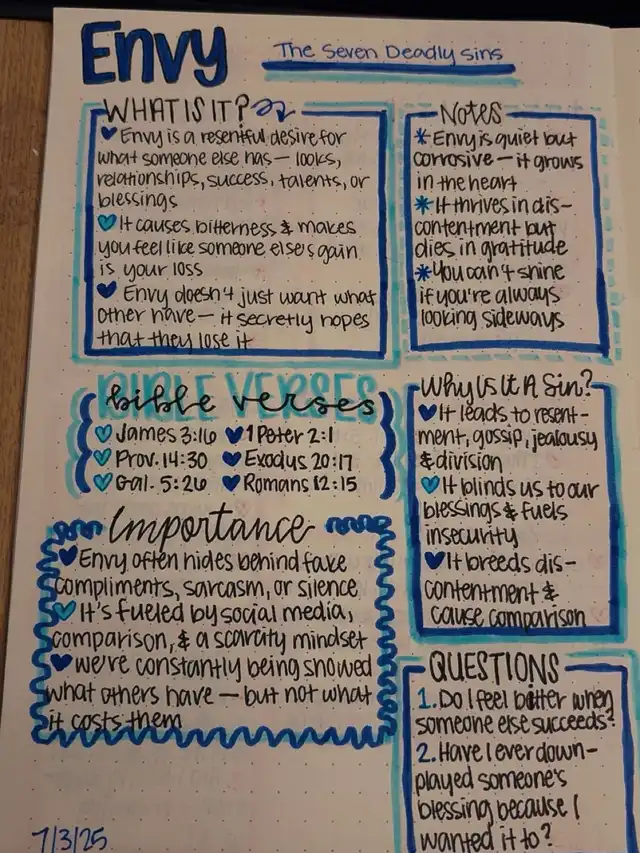 Envy
The Seven Deadly Sins
WHAT IS IT?
Envy is a resentful desire for
what someone else has — looks,
relationships, success, talents, or
blessings
It causes bitterness & makes
you feel like someone else's gain
is your loss
Envy doesn't just want what
other have — it secretly hopes
that they lose it
Notes
* Envy is quiet but
corrosive — it grows
in the heart
* It thrives in dis-
contentment but
dies in gratitude
* You can't shine
if you're always
looking sideways
BIBLE VERSES
bible verses
James 3:16 1 Peter 2:1
Prov. 14:30 Exodus 20:17
Gal. 5:26 Romans 12:15
Why Is It A Sin?
It leads to resent-
ment, gossip, jealousy
& division
It blinds us to our
blessings & fuels
insecurity
It breeds dis-
contentment &
cause comparison
Importance
Envy often hides behind fake
compliments, sarcasm, or silence
It's fueled by social media,
comparison, & a scarcity mindset
we're constantly being showed
what others have — but not what
it costs them
QUESTIONS
1. Do I feel bitter when
someone else succeeds?
2. Have I ever down-
played someone's
blessing because I
wanted it to?
7/3/25